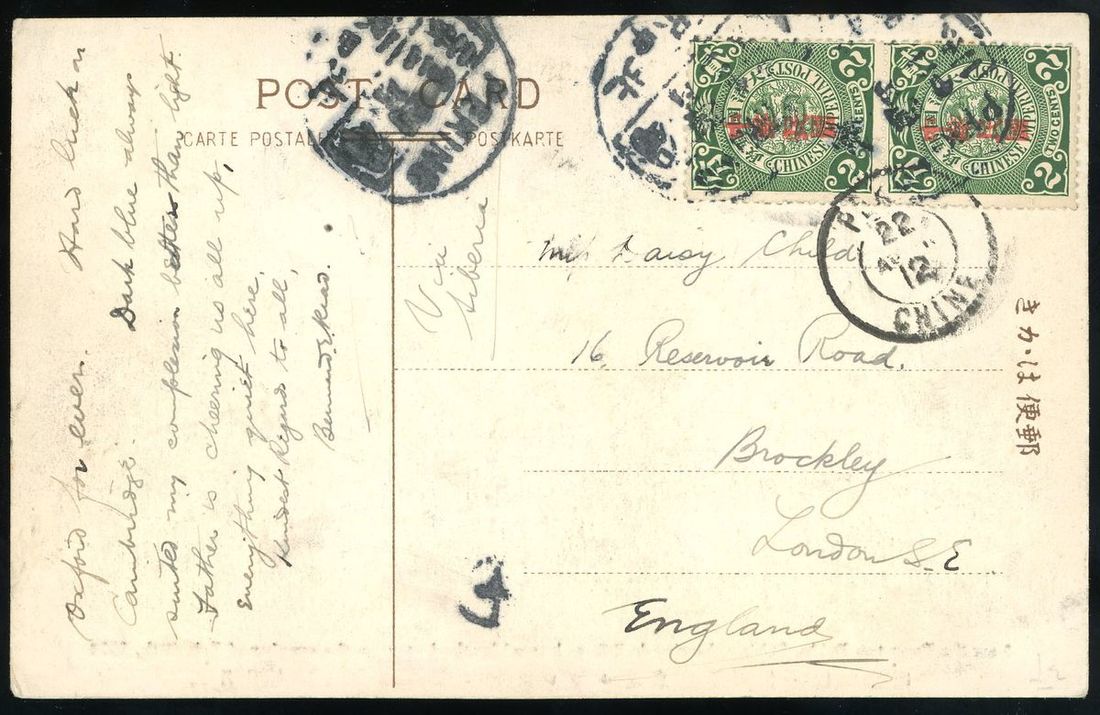 POST CARD
CARTE POSTALE
POSTKARTE
Oxford for ever. Hard luck on
Cambridge. Dark blue always
suited my complexion better than light
Father is cheering us all up,
Everything quiet here.
Kindest Regards to all,
Via
Siberia
Miss Daisy Child
16, Reservoir Road.
Brockley
London S.E
England
きかは便郵
2
TWO CENTS
CHINESE IMPERIAL POST
2
2
CHINESE IMPERIAL POST
TWO CENTS
2
PEKING
22
12
CHINE
4